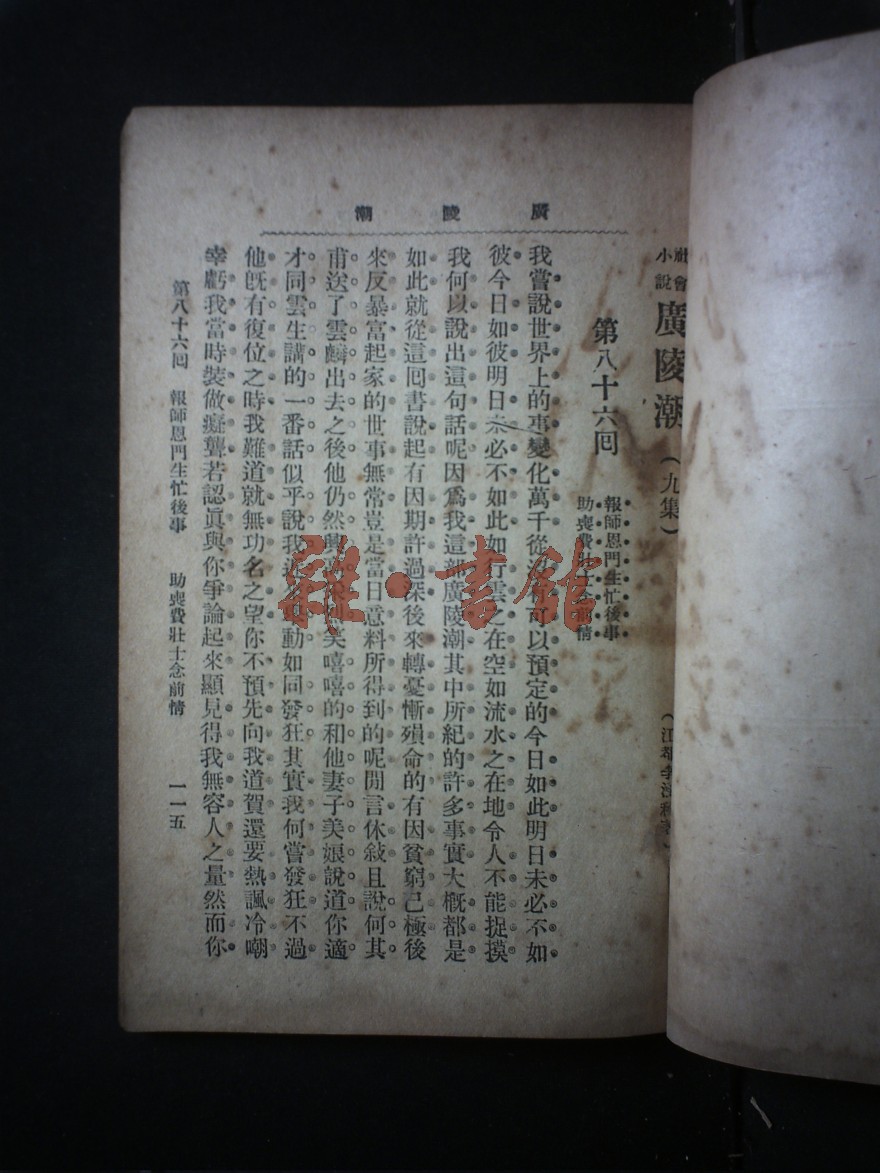 廣陵潮
社會小說 廣陵潮 (九集) (江都李涵秋著)
第八十六囘 報師恩門生忙後事 助喪費壯士念前情
我嘗說世界上的事變化萬千從沒有可以預定的今日如此明日未必不如
彼今日如彼明日未必不如此如行雲之在空如流水之在地令人不能捉摸
我何以說出這句話呢因爲我這部廣陵潮其中所紀的許多事實大槪都是
如此就從這囘書說起有因期許過深後來轉憂慚殞命的有因貧窮已極後
來反暴富起家的世事無常豈是當日意料所得到的呢閒言休敍且說何其
甫送了雲麟出去之後他仍然興笑嘻嘻的和他妻子美娘說道你適
才同雲生講的一番話似乎說我動如同發狂其實我何嘗發狂不過
他旣有復位之時我難道就無功名之望你不預先向我道賀還要熱諷冷嘲
幸虧我當時裝做癡聾若認眞與你爭論起來顯見得我無容人之量然而你
第八十六囘 報師恩門生忙後事 助喪費壯士念前情 一一五
雜·書館